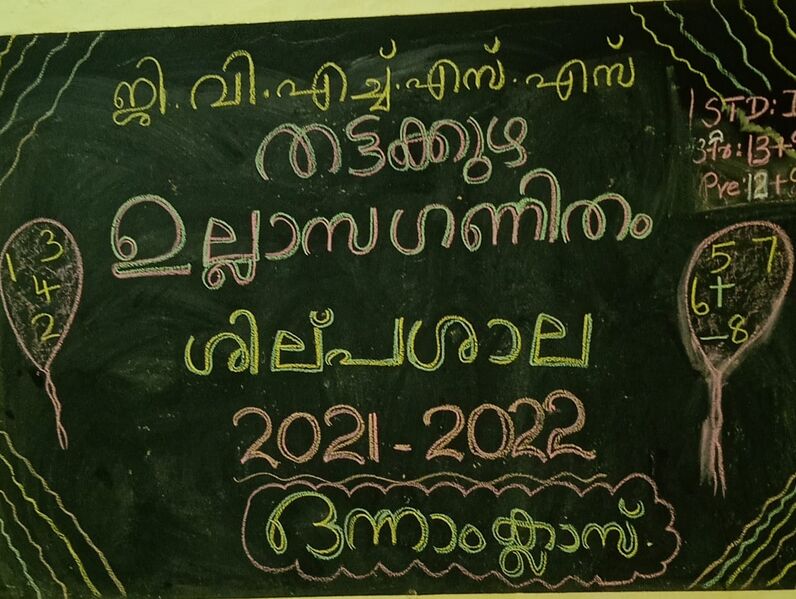 ജി.വി.എച്ച്.എസ്.എസ്
തട്ടക്കുഴ
ഉല്ലാസഗണിതം
ശില്പശാല
2021-2022
ഒന്നാംക്ലാസ്.
STD: I
13+
Pre: 12+
1 3
4
2
5 7
6 +
- 8